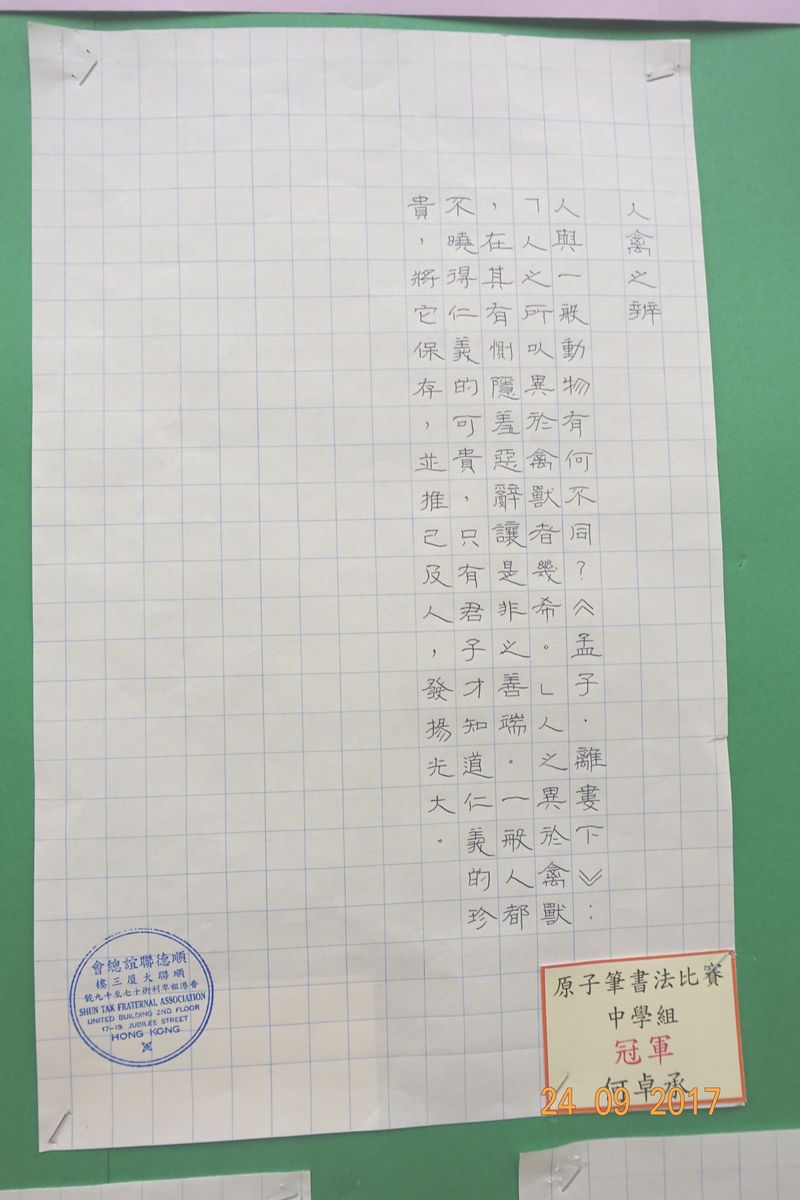 人禽之辨
人與一般動物有何不同？《孟子．離婁下》：
「人之所以異於禽獸者幾希。」人之異於禽獸
，在其有惻隱羞惡辭讓是非之善端。一般人都
不曉得仁義的可貴，只有君子才知道仁義的珍
貴，將它保存，並推己及人，發揚光大。
會總誼聯德順
樓三厦大聯順
號九十至七十街利卑租港香
SHUN TAK FRATERNAL ASSOCIATION
UNITED BUILDING 2ND FLOOR
17-19, JUBILEE STREET
HONG KONG
原子筆書法比賽
中學組
冠軍
何卓承
24 09 2017